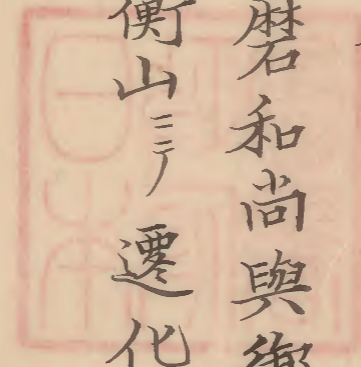 磨和尚與御
衡山ニテ遷化